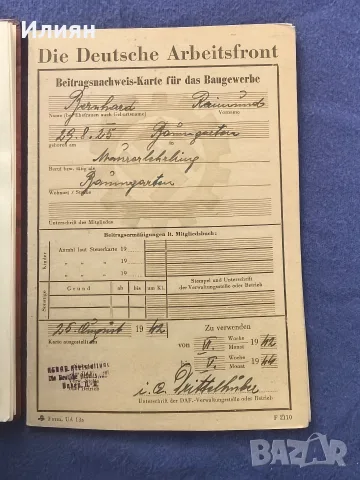 Илиян
Die Deutsche Arbeitsfront
Beitragsnachweis-Karte für das Baugewerbe
Bernhard Raimund
Name (bei Ehefrauen auch Geburtsname) Vorname
29.8.25 Baumgarten
geboren am in
Maurerlehrling
Beruf bzw. tätig als
Baumgarten
Wohnort / Straße
Unterschrift des Mitgliedes
Beitragsermäßigungen lt. Mitgliedsbuch:
Kinder
Anzahl laut Steuerkarte 19
" " " 19
" " " 19
Sonstige
Grund ab bis am Kl.
Stempel und Unterschrift
der Verwaltungsstelle oder Betrieb
25. August 1942
Karte ausgestellt am
Zu verwenden
von VI. Woche Monat 1942
bis V. Woche Monat 1944
Die Deutsche
Unterschrift der DAF.-Verwaltungsstelle oder Betrieb
Form. UA 12a F 2110
bazar.bg